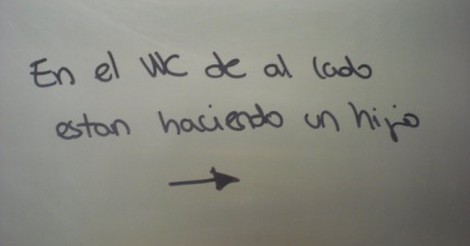 En el WC de al lado
estan haciendo un hijo